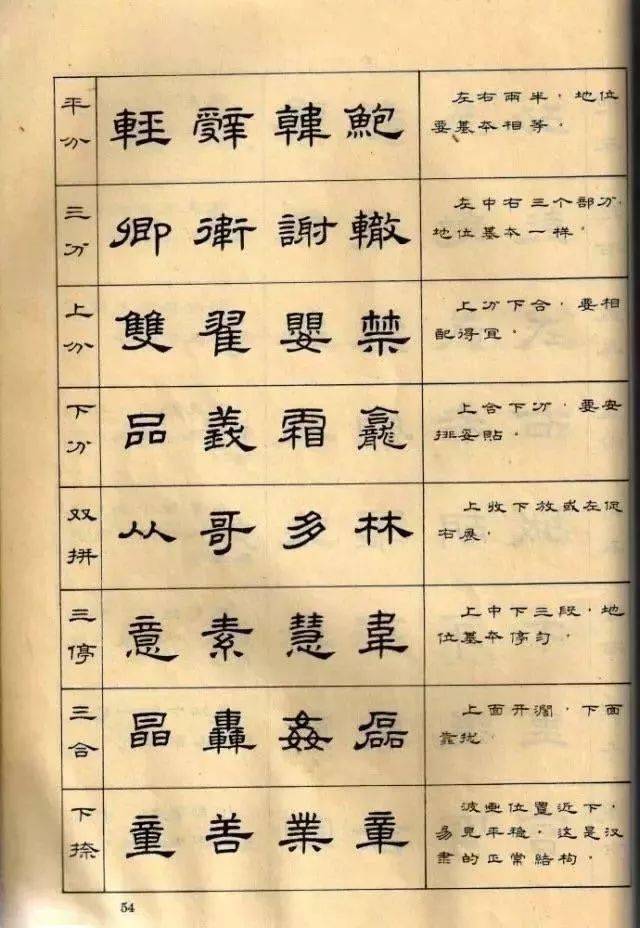 平分
輕 辤 韓 鮑
左右兩半，地位
要基本相等。
三分
卿 衛 謝 轍
左中右三个部分，
地位基本一样。
上分
雙 翟 嬰 禁
上分下合，要相
配得宜。
下分
品 義 霜 龕
上合下分，要安
排妥貼。
双拼
从 哥 多 林
上收下放或左促
右展。
三停
意 素 慧 韋
上中下三段，地
位基本停匀。
三合
晶 轟 姦 磊
上面开濶，下面
靠拢
下捺
童 善 業 章
波画位置近下，
易見平稳，这是汉
書的正常结构。
54